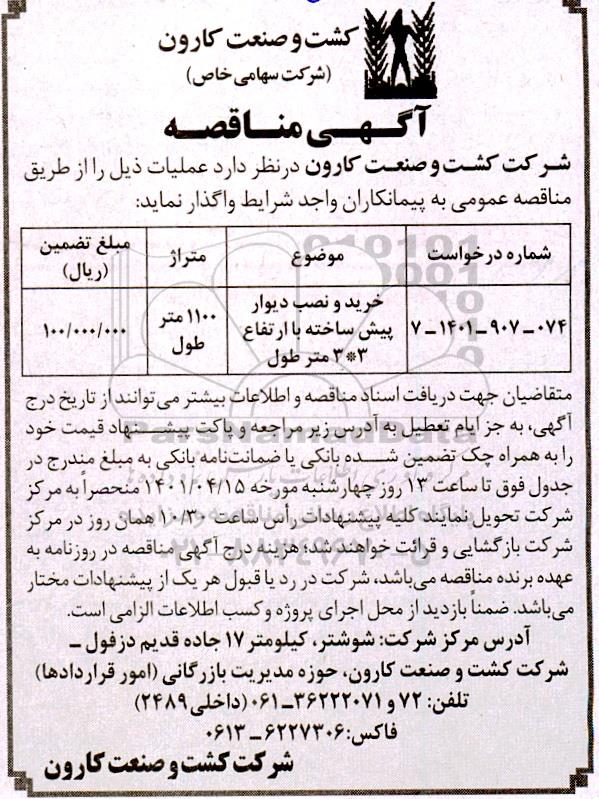 کشت و صنعت کارون
(شرکت سهامی خاص)
آگهی مناقصه
شرکت کشت و صنعت کارون درنظر دارد عملیات ذیل را از طریق
مناقصه عمومی به پیمانکاران واجد شرایط واگذار نماید:
شماره درخواست موضوع متراژ مبلغ تضمین (ریال)
۷-۱۴۰۱-۹۰۷-۰۷۴ خرید و نصب دیوار پیش ساخته با ارتفاع ۳*۳ متر طول ۱۱۰۰ متر طول ۱۰۰/۰۰۰/۰۰۰
متقاضیان جهت دریافت اسناد مناقصه و اطلاعات بیشتر می‌توانند از تاریخ درج
آگهی، به جز ایام تعطیل به آدرس زیر مراجعه و پاکت پیشنهاد قیمت خود
را به همراه چک تضمین شده بانکی یا ضمانت‌نامه بانکی به مبلغ مندرج در
جدول فوق تا ساعت ۱۳ روز چهارشنبه مورخه ۱۴۰۱/۰۴/۱۵ منحصراً به مرکز
شرکت تحویل نمایند کلیه پیشنهادات رأس ساعت ۱۰/۳۰ همان روز در مرکز
شرکت بازگشایی و قرائت خواهند شد؛ هزینه درج آگهی مناقصه در روزنامه به
عهده برنده مناقصه می‌باشد، شرکت در رد یا قبول هر یک از پیشنهادات مختار
می‌باشد. ضمناً بازدید از محل اجرای پروژه و کسب اطلاعات الزامی است.
آدرس مرکز شرکت: شوشتر، کیلومتر ۱۷ جاده قدیم دزفول -
شرکت کشت و صنعت کارون، حوزه مدیریت بازرگانی (امور قراردادها)
تلفن: ۷۲ و ۳۶۲۲۲۰۷۱-۰۶۱ (داخلی ۲۴۸۹)
فاکس: ۶۲۲۷۳۰۶-۰۶۱۳
شرکت کشت و صنعت کارون
ParsNamadData